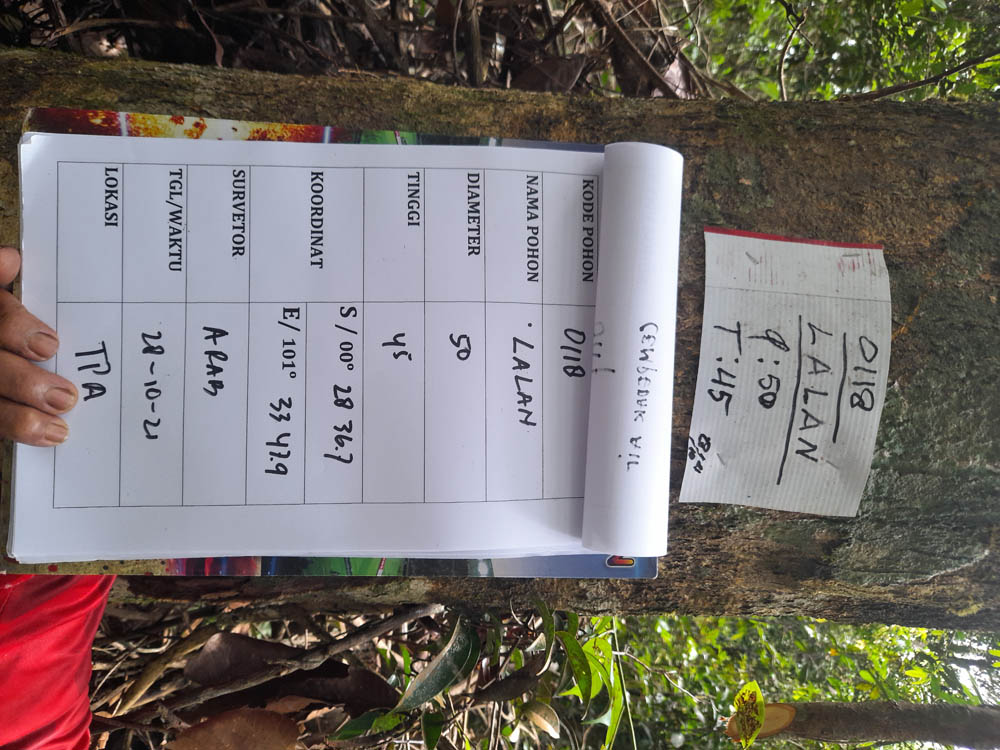 0118
LALAN
φ: 50
T: 45
CEMPEDAK AIL
KODE POHON 0118
NAMA POHON LALAN
DIAMETER 50
TINGGI 45
KOORDINAT S / 00° 28 36.7
E/ 101° 33 47.9
SURVETOR ARAB
TGL/WAKTU 28-10-21
LOKASI TPA